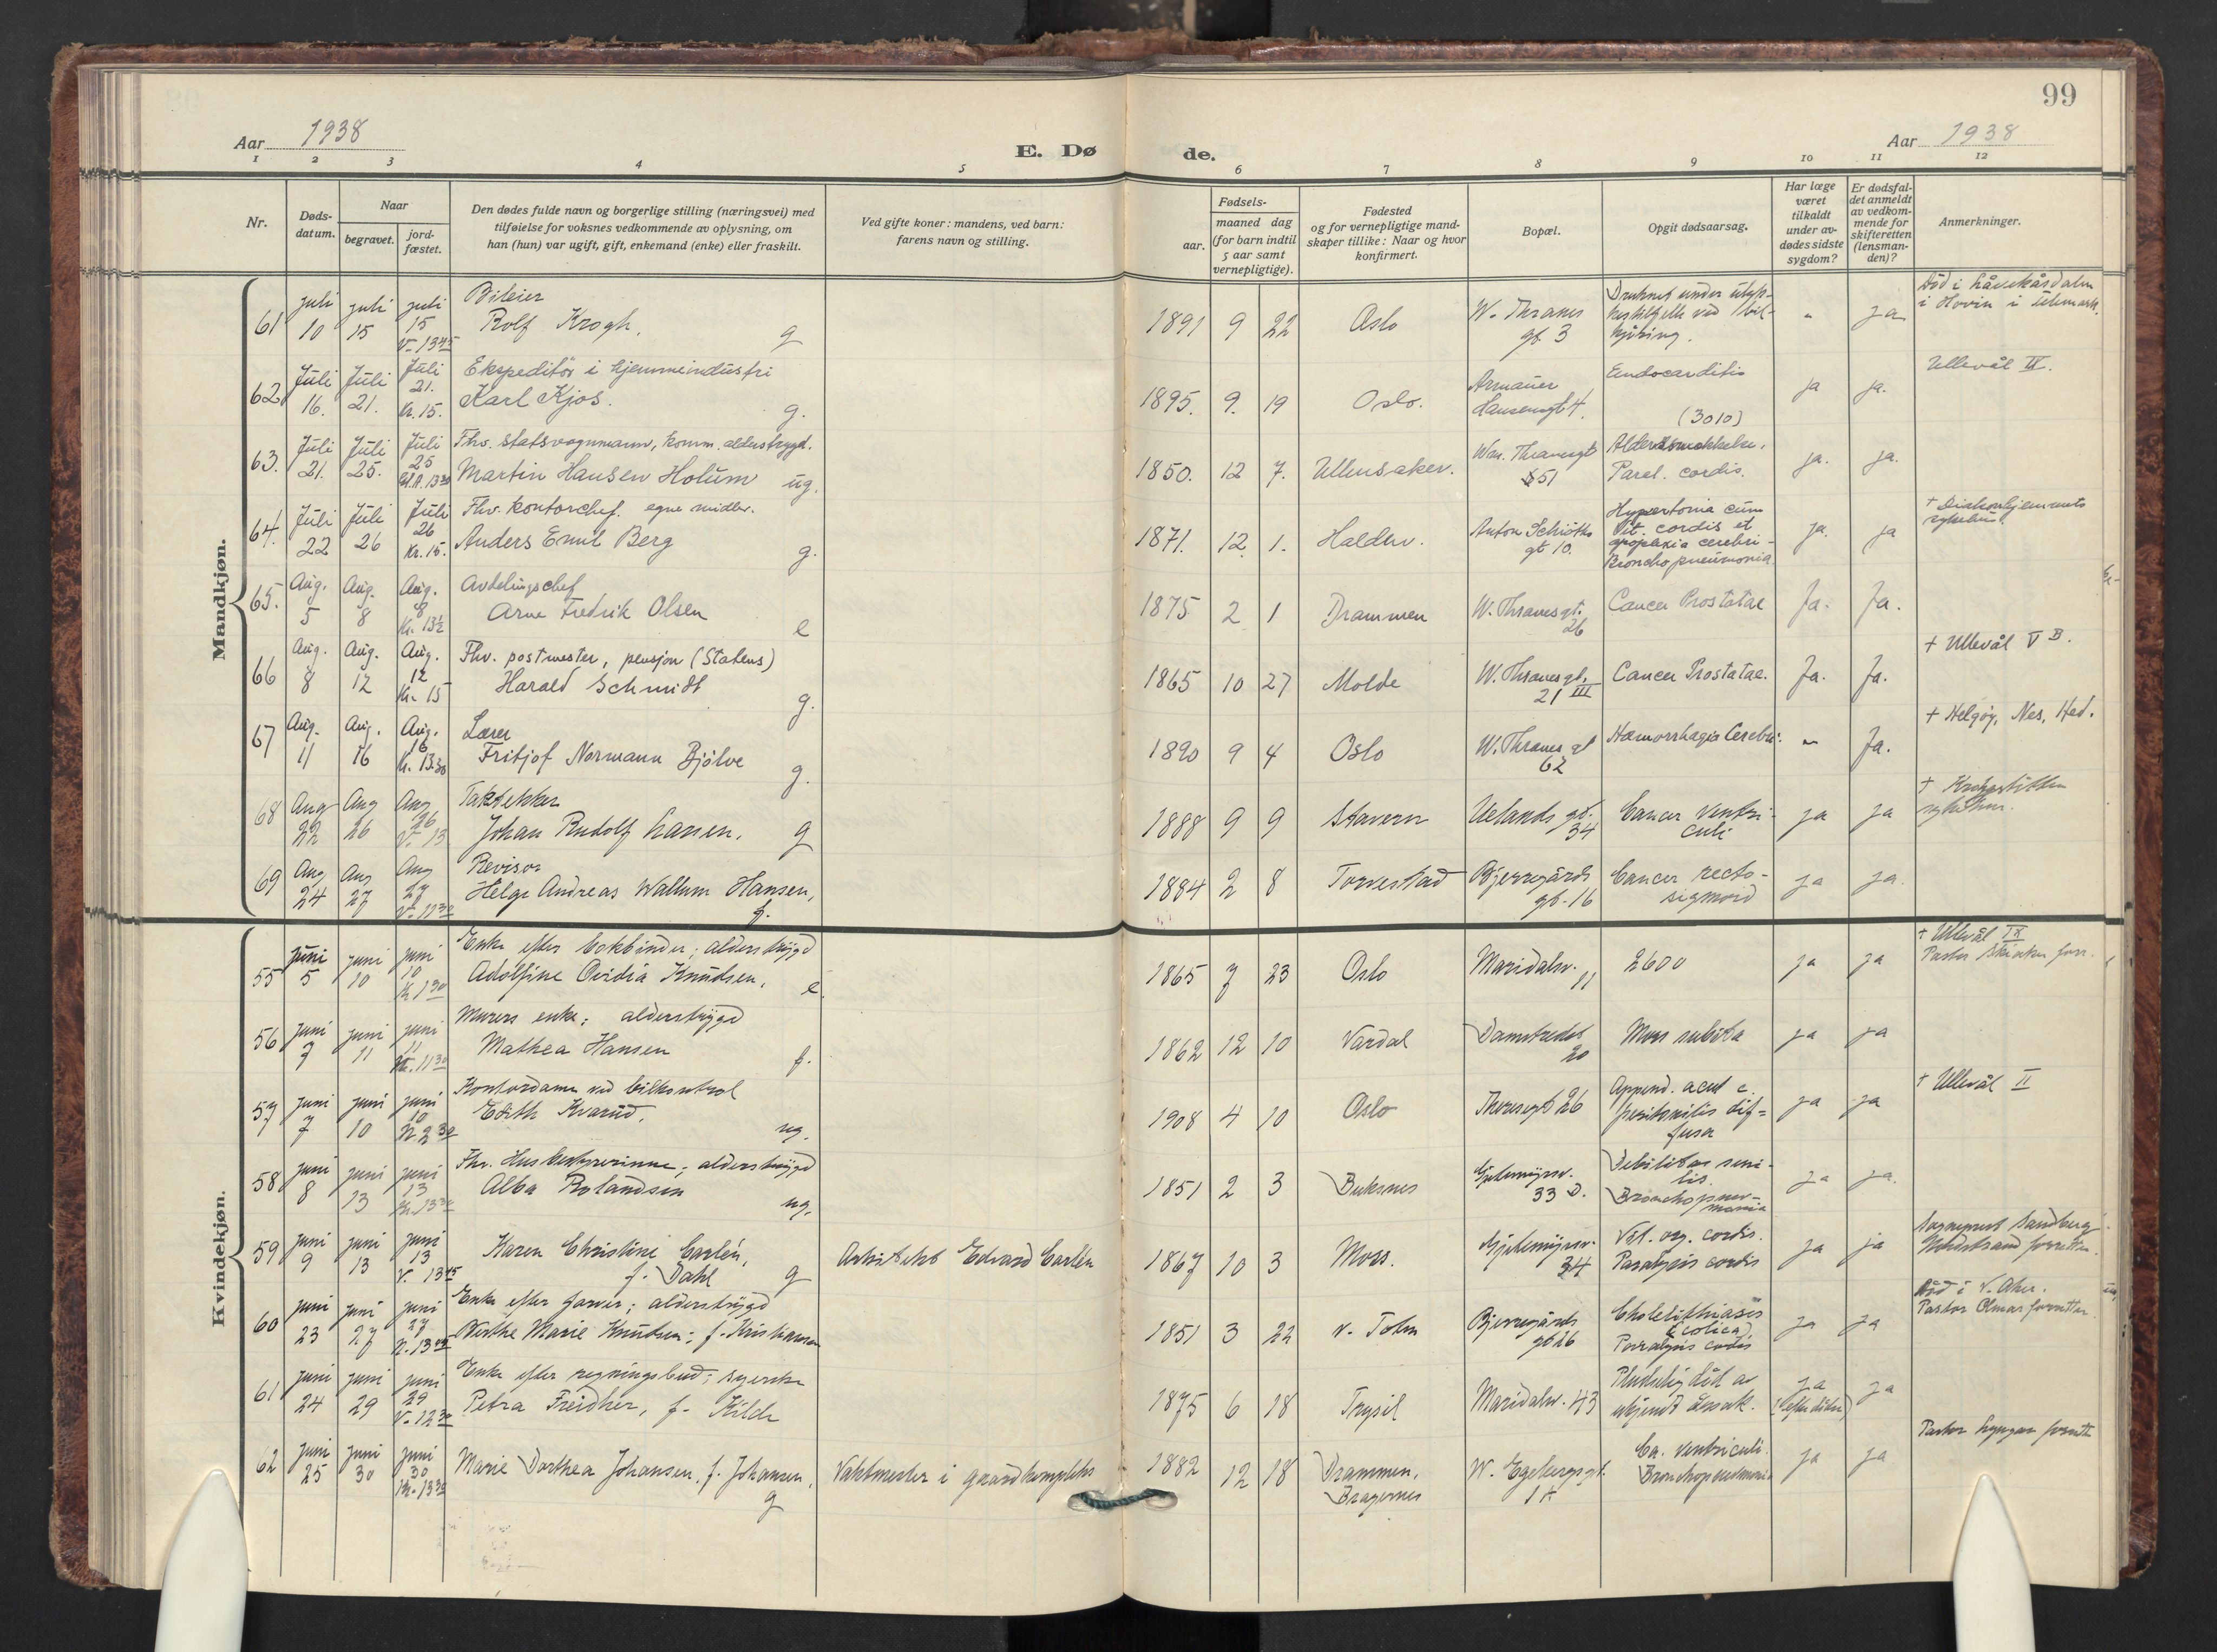 99
Aar 1938
E. Dø
de.
Aar 1938
1 2 3 4 5 6 7 8 9 10 11 12
Nr.
Døds-
datum.
Naar
begravet.
jord-
fæstet.
Den dødes fulde navn og borgerlige stilling (næringsvei) med
tilføielse for voksnes vedkommende av oplysning, om
han (hun) var ugift, gift, enkemand (enke) eller fraskilt.
Ved gifte koner: mandens, ved barn:
farens navn og stilling.
Fødsels-
aar.
maaned dag
(for barn indtil
5 aar samt
vernepligtige).
Fødested
og for vernepligtige mand-
skaper tillike: Naar og hvor
konfirmert.
Bopæl.
Opgit dødsaarsag.
Har læge
været
tilkaldt
under av-
dødes sidste
sygdom?
Er dødsfal-
det anmeldt
av vedkom-
mende for
skifteretten
(lensman-
den)?
Anmerkninger.
Mandkjøn.
61 juli 10 juli 15 juli 15 V. 13 45
Bileier
Rolf Krogh. g
1891 9 22 Oslo W. Thranes gt. 3
Druknet under
kjøring. " ja
Død i
i Hovin i Telemark.
62 Juli 16. Juli 21. Juli 21. Kr. 15.
Ekspeditör i hjemmeindustri
Karl Kjos. g.
1895. 9. 19 Oslo. Armauer Hansensgt 4.
Endocarditis
(3010) ja ja. Ullevål IX.
63. Juli 21. Juli 25. Juli 25 13 30
Fhv. statsvognmann, komm. alderstrygd.
Martin Hansen Holum ug.
1850. 12 7. Ullensaker. Mar. Thranesgt 51
Parel. cordis. ja. ja.
64. Juli 22 Juli 26 Juli 26 Kr. 15.
Fhv. kontorchef. egne midler.
Anders Emil Berg g.
1871. 12. 1. Halden. Anton Schiöths gt 10.
Hypertonia cum
Vit. cordis et
apoplexia cerebri -
Bronchopneumonia ja. ja
+ Diakonhjemmets
sykehus.
65. Aug. 5 Aug. 8 Aug. 8 Kr. 13½
Avdelingschef
Arne Fredrik Olsen e
1875 2 1 Drammen W. Thranesgt. 26 Cancer Prostatae Ja. Ja.
66 Aug. 8 Aug. 12 Aug. 12 Kr. 15
Fhv. postmester, pensjon (Statens)
Harald Schmidt g.
1865 10 27 Molde W. Thranesgt. 21 III Cancer Prostatae. Ja. Ja. + Ullevål V B.
67 Aug. 11 Aug. 16 Aug. 16 Kr. 13.30
Lærer
Fritjof Normann Bjölve g.
1890 9 4 Oslo W. Thranes gt 62 Hæmorrhagia Cerebri. " Ja. + Helgøy, Nes, Hed.
68 Aug 22 Aug 26 Aug 26 V. 13
Taktekker
Johan Rudolf Larsen. g
1888 9 9 Stavern Uelands gt. 34 Cancer ventri-
culi ja ja + Krohgstötten
sykehus.
69 Aug 24 Aug 27 Aug 27 V. 11 30
Revisor
Helge Andreas Wallum Hansen, f.
1884 2 8 Torvestad Bjerregårds gt. 16 Cancer recto-
sigmoid ja ja.
Kvindekjøn.
55 juni 5 juni 10 juni 10 Kr 1 30
Enke efter bokbinder; alderstrygd
Adolfine Ovidia Knudsen. e.
1865 7 23 Oslo Maridalsv. 11 2600 ja ja + Ullevål IX
Pastor forr.
56 juni 7 juni 11 juni 11 Kr. 11 30
Murers enke; alderstrygd
Mathea Hansen f.
1862 12 10 Vardal Damstredet 20 Mors subita ja ja
57 juni 7 juni 10 juni 10 N. 2 30
Kontordame ved bilkontrol
Edith Kvarud. ug.
1908 4 10 Oslo Theresegt 26 Append. acut c.
peritonitis dif=
fusa ja ja + Ullevål II
58 juni 8 juni 13 juni 13 Kr. 13 30
Fhv. Husbestyrerinne; alderstrygd
Alba Rolandsen ug.
1851 2 3 Buksnes Gjetemyrsv. 33 D. Debilitas seni-
lis.
Bronchopneu-
monia ja ja.
59 juni 9 juni 13 juni 13 V. 13 45
Karen Christine Carlén,
f. Dahl g
Arkitekt Edvard Carlén
1867 10 3 Moss. Gjetemyrsv. 34 Vit. org. cordis.
Paralysis cordis ja ja Sogneprest Sandberg
Nordstrand forrettet.
60 juni 23 juni 27 juni 27 N. 13 45
Enke efter garver; alderstrygd
Berthe Marie Knudsen; f. Kristiansen
1851 3 22 V. Toten Bjerregårds gt 26 Cholelithiasis
(colica)
Paralysis cordis ja ja Død i V. Aker.
Pastor Olmar forretter
61 juni 24 juni 29 juni 29 V. 12 30
Enke efter regningsbud; syerske
Petra Freidher, f. Kilde
1875 6 18 Trysil Maridalsv. 43 Pludselig död av
ukjendt årsak. ja
(efter döden) ja
62 juni 25 juni 30 juni 30 Kr. 13 30
Marie Dorthea Johansen, f. Johansen, g
Vaktmester i gaardkompleks
1882 12 18 Drammen,
Bragernes W. Egebergsgt. 1 Ca. ventriculi.
Bronchopneumoni ja ja Pastor forrett